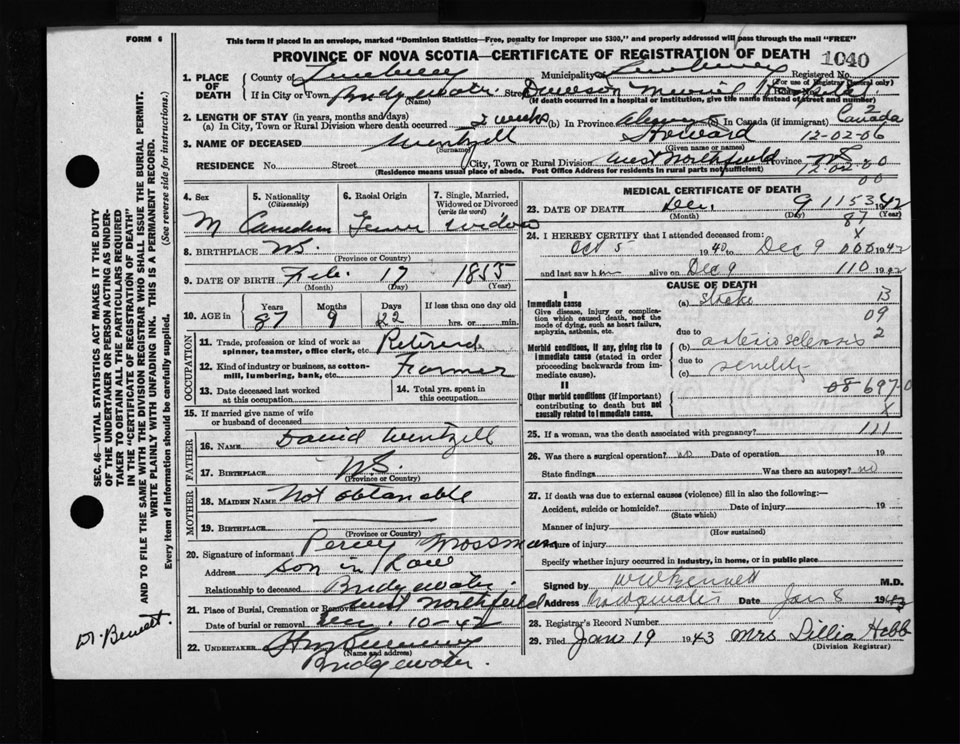 FORM 6
This form if placed in an envelope, marked "Dominion Statistics—Free, penalty for improper use $300," and properly addressed will pass through the mail "FREE"
PROVINCE OF NOVA SCOTIA—CERTIFICATE OF REGISTRATION OF DEATH
1040
1. PLACE OF DEATH
County of Lunenburg Municipality Lunenburg Registered No.
(For use of Registrar General only)
If in City or Town Bridgewater Street Dawson Memorial Hospital
(Name) (If death occurred in a hospital or institution, give the name instead of street and number)
2. LENGTH OF STAY (in years, months and days)
(a) In City, Town or Rural Division where death occurred 2 weeks (b) In Province always (c) In Canada (if immigrant) Canada 2
3. NAME OF DECEASED Wentzell Howard 12-02-06
(Surname) (Given name or names)
RESIDENCE No. Street City, Town or Rural Division West Northfield Province NS
12-02-00
(Residence means usual place of abode. Post Office Address for residents in rural parts not sufficient)
00
4. Sex M
5. Nationality (Citizenship) Canadian
6. Racial Origin
7. Single, Married, Widowed or Divorced (write the word) Widow
8. BIRTHPLACE NS.
(Province or County)
9. DATE OF BIRTH Feb. 17 1855
(Month) (Day) (Year)
10. AGE in Years 87 Months 9 Days 22 If less than one day old hrs. or min.
OCCUPATION
11. Trade, profession or kind of work as spinner, teamster, office clerk, etc. Retired
12. Kind of industry or business, as cotton-mill, lumbering, bank, etc. Farmer
13. Date deceased last worked at this occupation
14. Total yrs. spent in this occupation
15. If married give name of wife or husband of deceased
FATHER
16. NAME David Wentzell
17. BIRTHPLACE NS.
(Province or County)
MOTHER
18. MAIDEN NAME Not obtanable
19. BIRTHPLACE
(Province or County)
20. Signature of informant Percy Mossman
Address son in Law
Relationship to deceased Bridgewater.
21. Place of Burial, Cremation or Removal West Northfield
Date of burial or removal Dec. 10-42
22. UNDERTAKER
(Name and address)
Bridgewater.
MEDICAL CERTIFICATE OF DEATH
23. DATE OF DEATH Dec. 9 1942
1153
(Month) (Day) (Year)
87
24. I HEREBY CERTIFY that I attended deceased from: X
Oct 5 1940 to Dec 9 1942
000
and last saw him alive on Dec 9 1942
110
CAUSE OF DEATH
I
Immediate cause
Give disease, injury or complication which caused death, not the mode of dying, such as heart failure, asphyxia, asthenia, etc.
(a) stroke 13
09
due to
Morbid conditions, if any, giving rise to immediate cause (stated in order proceeding backwards from immediate cause).
(b) arterio sclerosis 2
due to
(c) senility
II
08-697-0
Other morbid conditions (if important) contributing to death but not causally related to immediate cause.
X
25. If a woman, was the death associated with pregnancy? 111
26. Was there a surgical operation? no Date of operation 19
State findings Was there an autopsy? no
27. If death was due to external causes (violence) fill in also the following:—
Accident, suicide or homicide? Date of injury 19
(State which)
Manner of injury
(How sustained)
Nature of injury
Specify whether injury occurred in Industry, in home, or in public place
Signed by WW Bennett M.D.
Address Bridgewater Date Jan 8 1943
28. Registrar's Record Number
29. Filed Jan 19 1943 Mrs Lillia Hebb
(Division Registrar)
SEC. 46—VITAL STATISTICS ACT MAKES IT THE DUTY
OF THE UNDERTAKER OR PERSON ACTING AS UNDER-
TAKER TO OBTAIN ALL THE PARTICULARS REQUIRED
IN THE "CERTIFICATE OF REGISTRATION OF DEATH"
AND TO FILE THE SAME WITH THE DIVISION REGISTRAR WHO SHALL ISSUE THE BURIAL PERMIT.
WRITE PLAINLY WITH UNFADING INK. THIS IS A PERMANENT RECORD.
Every item of information should be carefully supplied. (See reverse side for instructions.)
Dr. Bennett.